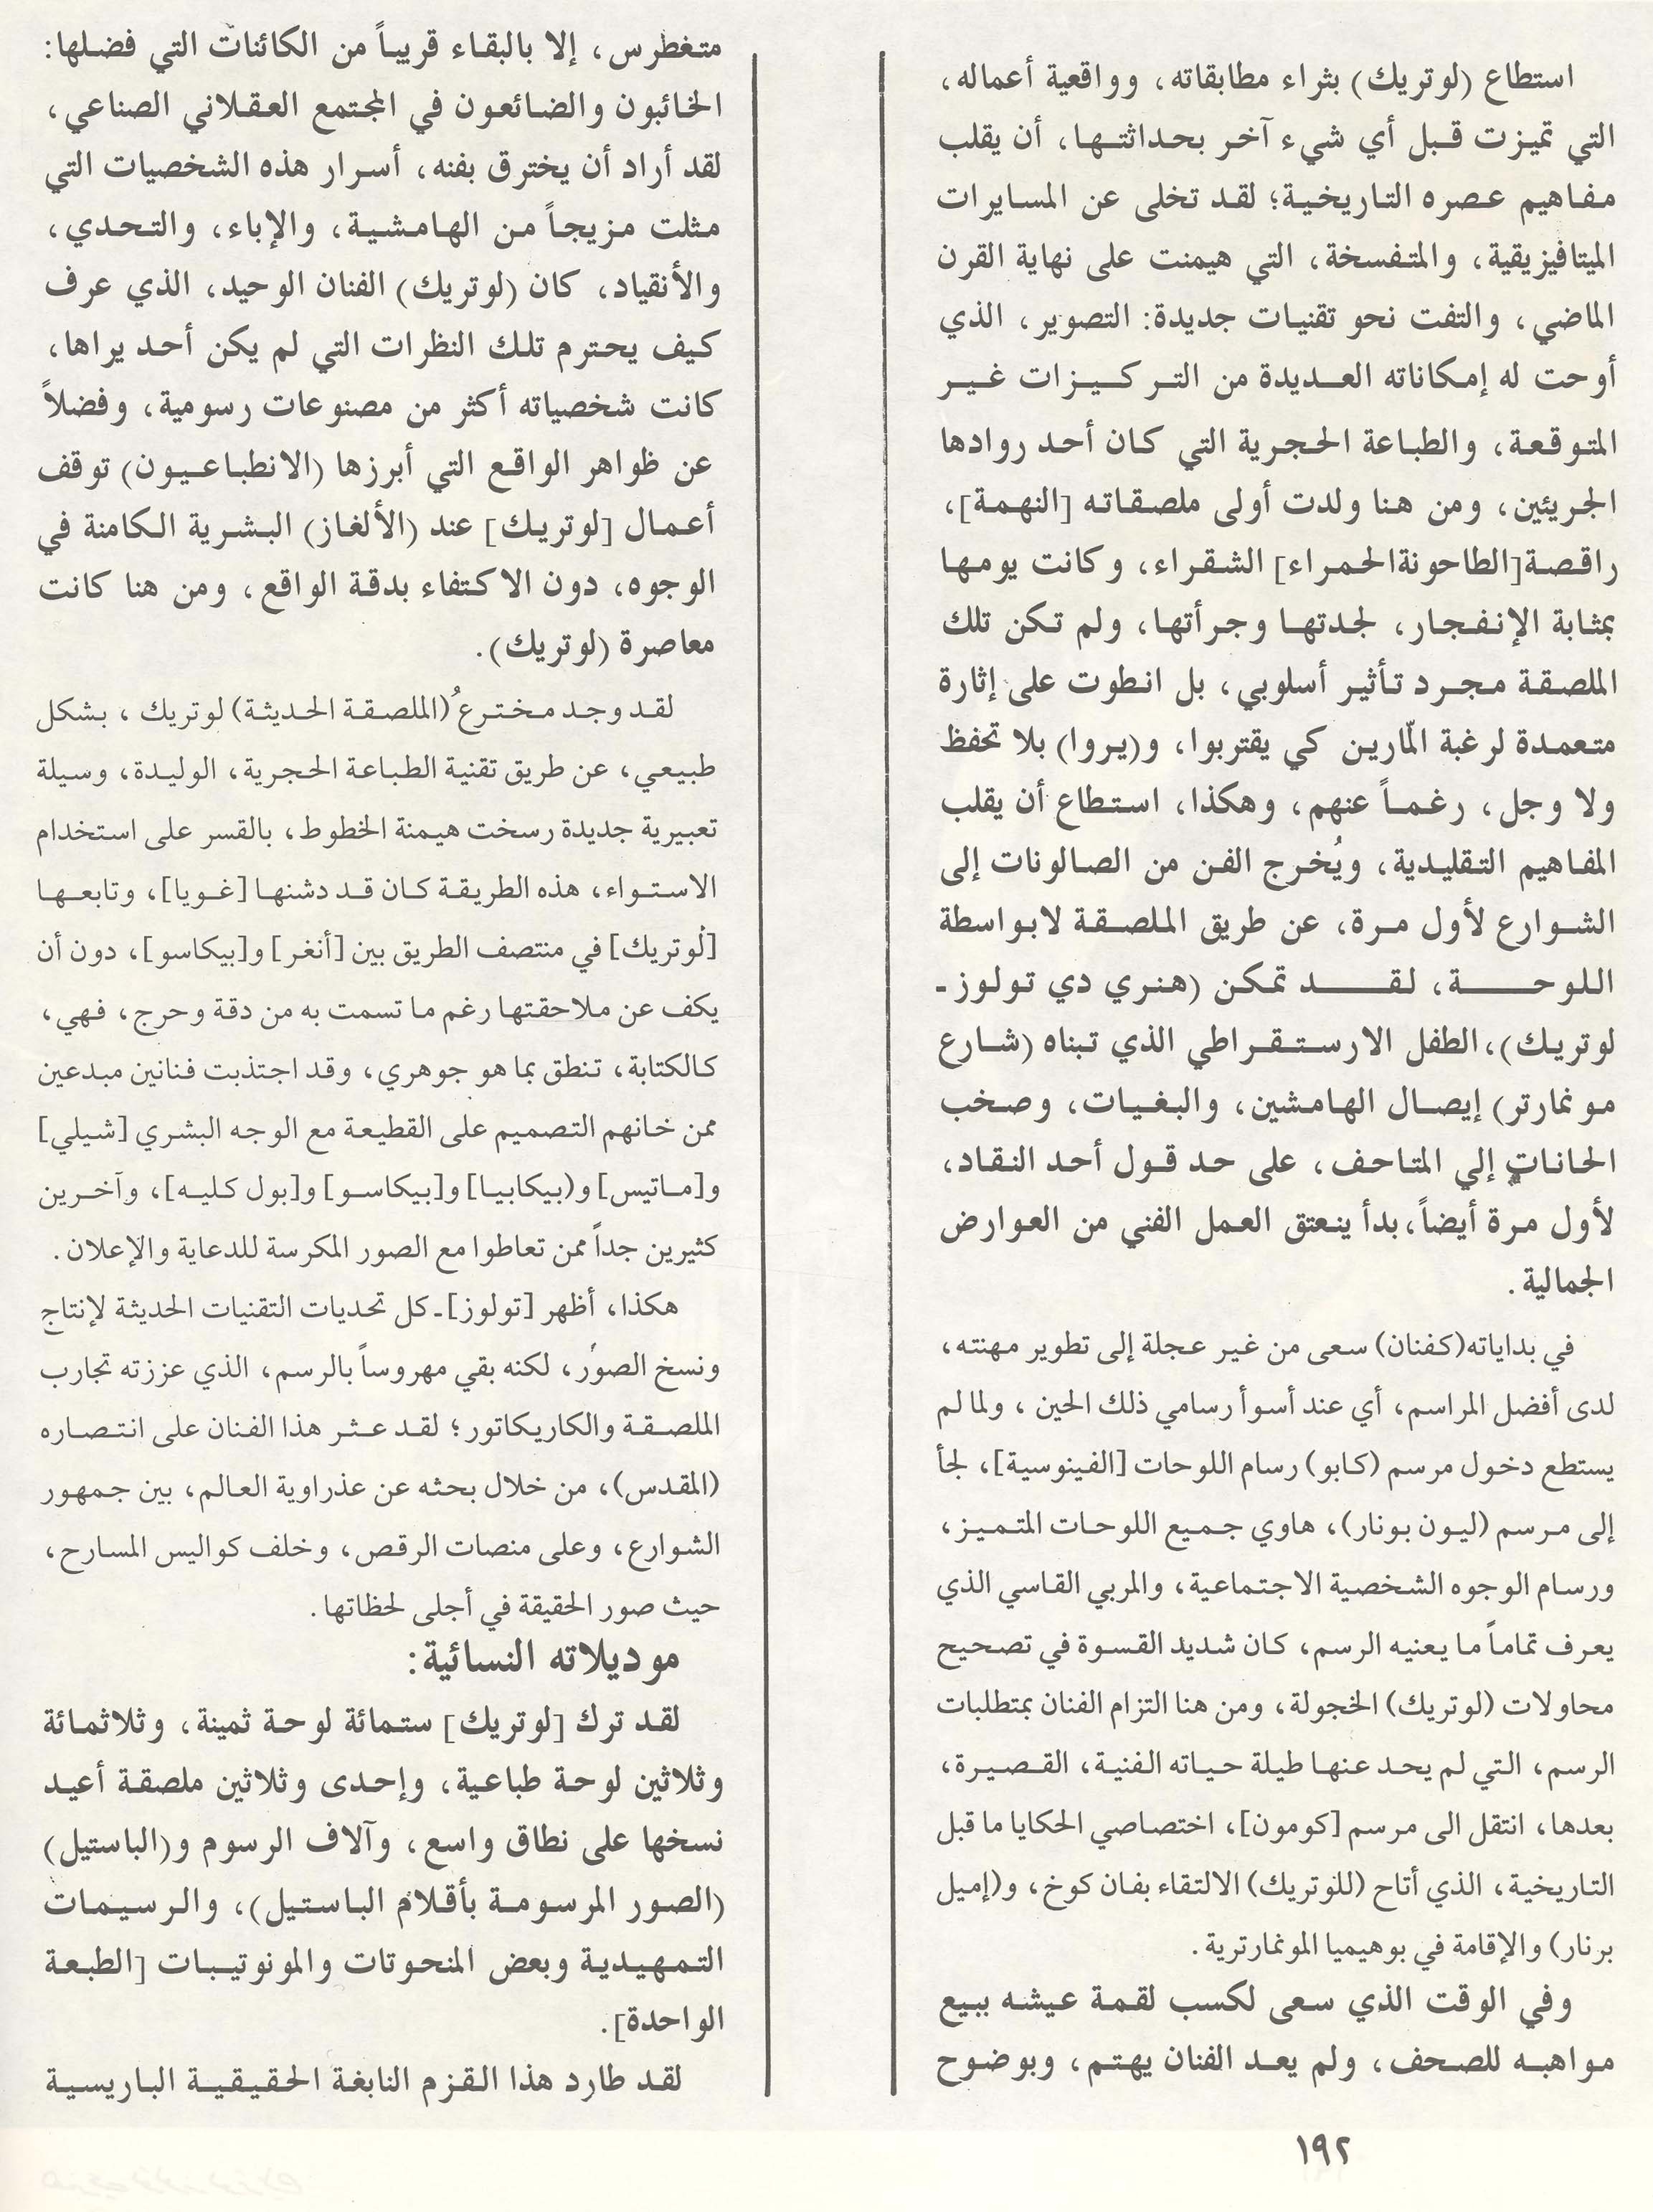 استطاع (لوتريك) بثراء مطابقاته، وواقعية أعماله،
التي تميزت قبل أي شيء آخر بحداثتها، أن يقلب
مفاهيم عصره التاريخية؛ لقد تخلى عن المسايرات
الميتافيزيقية، والمتفسخة، التي هيمنت على نهاية القرن
الماضي، والتفت نحو تقنيات جديدة: التصوير، الذي
أوحت له إمكاناته العديدة من التركيزات غير
المتوقعة، والطباعة الحجرية التي كان أحد روادها
الجريئين، ومن هنا ولدت أولى ملصقاته [النهمة]،
راقصة[الطاحونةالحمراء] الشقراء، وكانت يومها
بمثابة الإنفجار، لجدتها وجرأتها، ولم تكن تلك
الملصقة مجرد تأثير أسلوبي، بل انطوت على إثارة
متعمدة لرغبة المّارين كي يقتربوا، و(يروا) بلا تحفظ
ولا وجل، رغماً عنهم، وهكذا، استطاع أن يقلب
المفاهيم التقليدية، ويُخرج الفن من الصالونات إلى
الشوارع لأول مرة، عن طريق الملصقة لابواسطة
اللوحة، لقد تمكن (هنري دي تولوز ـ
لوتريك)، الطفل الارستقراطي الذي تبناه (شارع
مونمارتر) إيصال الهامشين، والبغيات، وصخب
الحانات إلي المتاحف، على حد قول أحد النقاد،
لأول مرة أيضاً، بدأ ينعتق العمل الفني من العوارض
الجمالية.
في بداياته(كفنان) سعى من غير عجلة إلى تطوير مهنته،
لدى أفضل المراسم، أي عند أسوأ رسامي ذلك الحين، ولما لم
يستطع دخول مرسم (كابو) رسام اللوحات [الفينوسية]، لجأ
إلى مرسم (ليون بونار)، هاوي جميع اللوحات المتميز،
ورسام الوجوه الشخصية الاجتماعية، والمربي القاسي الذي
يعرف تماماً ما يعنيه الرسم، كان شديد القسوة في تصحيح
محاولات (لوتريك) الخجولة، ومن هنا التزام الفنان بمتطلبات
الرسم، التي لم يحد عنها طيلة حياته الفنية، القصيرة،
بعدها، انتقل الى مرسم [كومون]، اختصاصي الحكايا ما قبل
التاريخية، الذي أتاح (للوتريك) الالتقاء بفان كوخ، و(إميل
برنار) والإقامة في بوهيميا المونمارترية.
وفي الوقت الذي سعى لكسب لقمة عيشه ببيع
مواهبه للصحف، ولم يعد الفنان يهتم، وبوضوح
متغطرس، إلا بالبقاء قريباً من الكائنات التي فضلها:
الخائبون والضائعون في المجتمع العقلاني الصناعي،
لقد أراد أن يخترق بفنه، أسرار هذه الشخصيات التي
مثلت مزيجاً من الهامشية، والإباء، والتحدي،
والأنقياد، كان (لوتريك) الفنان الوحيد، الذي عرف
كيف يحترم تلك النظرات التي لم يكن أحد يراها،
كانت شخصياته أكثر من مصنوعات رسومية، وفضلاً
عن ظواهر الواقع التي أبرزها (الانطباعيون) توقف
أعمال [لوتريك] عند (الألغاز) البشرية الكامنة في
الوجوه، دون الاكتفاء بدقة الواقع، ومن هنا كانت
معاصرة (لوتريك).
لقد وجد مخترعُ (الملصقة الحديثة) لوتريك، بشكل
طبيعي، عن طريق تقنية الطباعة الحجرية، الوليدة، وسيلة
تعبيرية جديدة رسخت هيمنة الخطوط، بالقسر على استخدام
الاستواء، هذه الطريقة كان قد دشنها [غويا]، وتابعها
[لوتريك] في منتصف الطريق بين [أنغر] و[بيكاسو]، دون أن
يكف عن ملاحقتها رغم ما تسمت به من دقة وحرج، فهي،
كالكتابة، تنطق بما هو جوهري، وقد اجتذبت فنانين مبدعين
ممن خانهم التصميم على القطيعة مع الوجه البشري [شيلي]
و[ماتيس] و(بيكابيا] و[بيكاسو] و[بول كليه]، وآخرين
كثيرين جداً ممن تعاطوا مع الصور المكرسة للدعاية والإعلان.
هكذا، أظهر [تولوز] ـ كل تحديات التقنيات الحديثة لإنتاج
ونسخ الصور، لكنه بقي مهروساً بالرسم، الذي عززته تجارب
الملصقة والكاريكاتور؛ لقد عثر هذا الفنان على انتصاره
(المقدس)، من خلال بحثه عن عذراوية العالم، بين جمهور
الشوارع، وعلى منصات الرقص، وخلف كواليس المسارح،
حيث صور الحقيقة في أجلى لحظاتها.
موديلاته النسائية:
لقد ترك [لوتريك] ستمائة لوحة ثمينة، وثلاثمائة
وثلاثين لوحة طباعية، وإحدى وثلاثين ملصقة أعيد
نسخها على نطاق واسع، وآلاف الرسوم و(الباستيل)
(الصور المرسومة بأقلام الباستيل)، والرسيمات
التمهيدية وبعض المنحوتات والمونوتيبات [الطبعة
الواحدة].
لقد طارد هذا القزم النابغة الحقيقية الباريسية
١٩٢